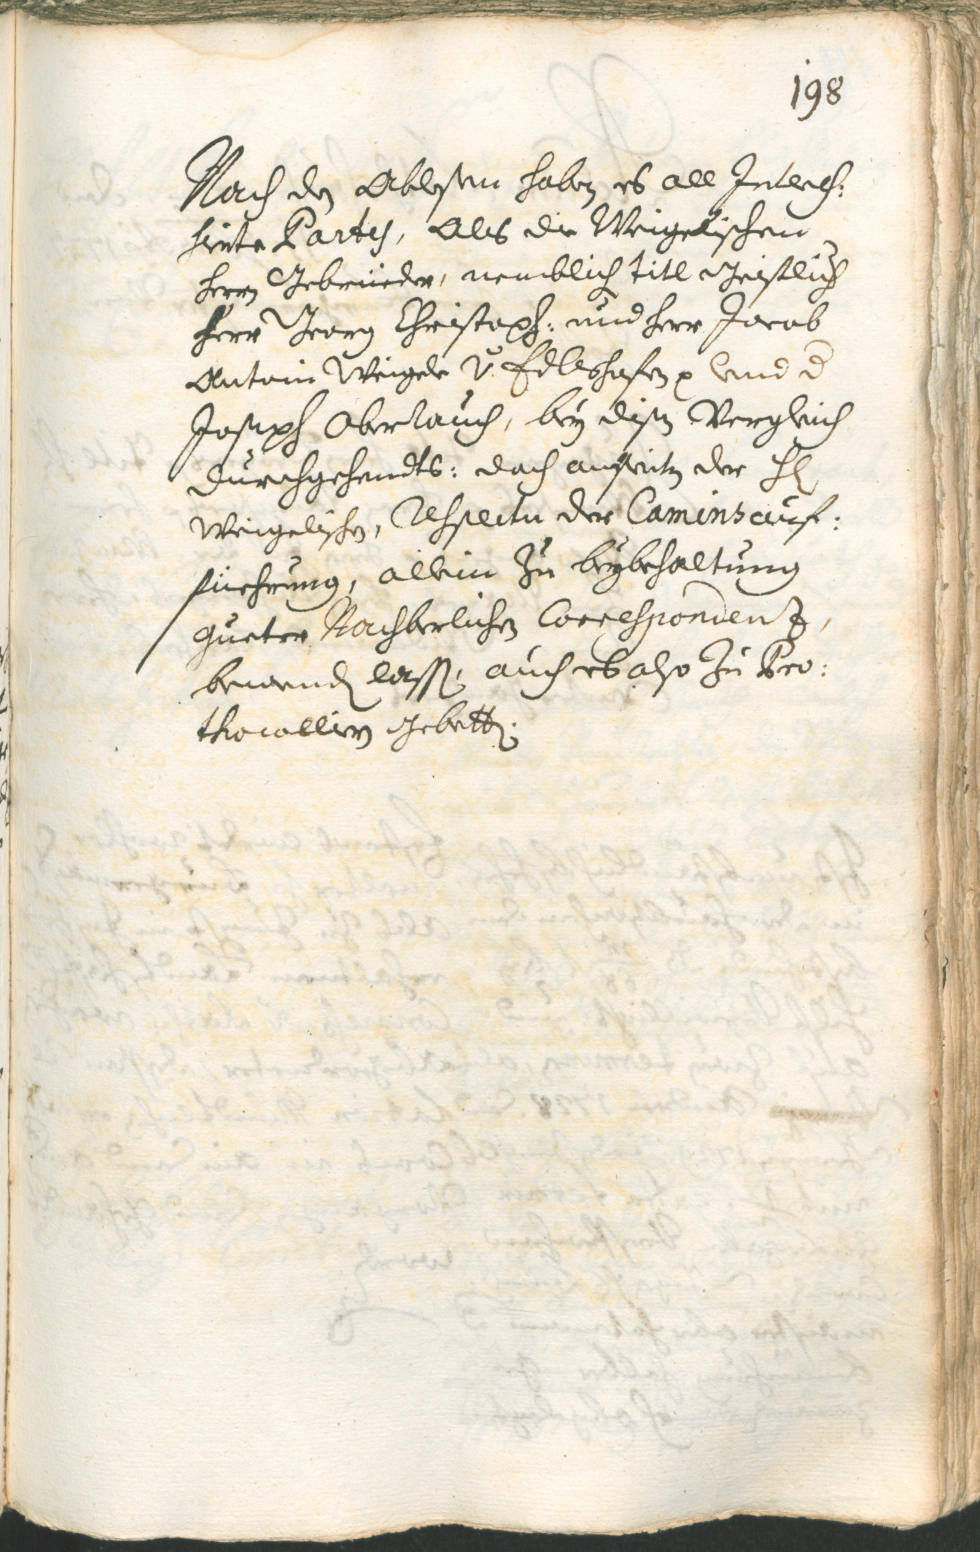 198
Nach den Ablesen haben es all Interes:
sirte Partes, Als die Weigelischen
Herrn Gebrüeder, nemblich titl Geistlich
Herr Georg Christoph: und Herr Jacob
Antoni Weigele v: Edlshofen und d
Joseph Oberlauch, bey disen Vergleich
durchgehendts: doch anseiten der
Weigelischen, respectu der Caminsauf:
füehrung, allein zu beybehaltung
gueter Nachberlichen Correspondenz,
bewenden lassen, auch es also zu Pro:
thocolliern gebetten.